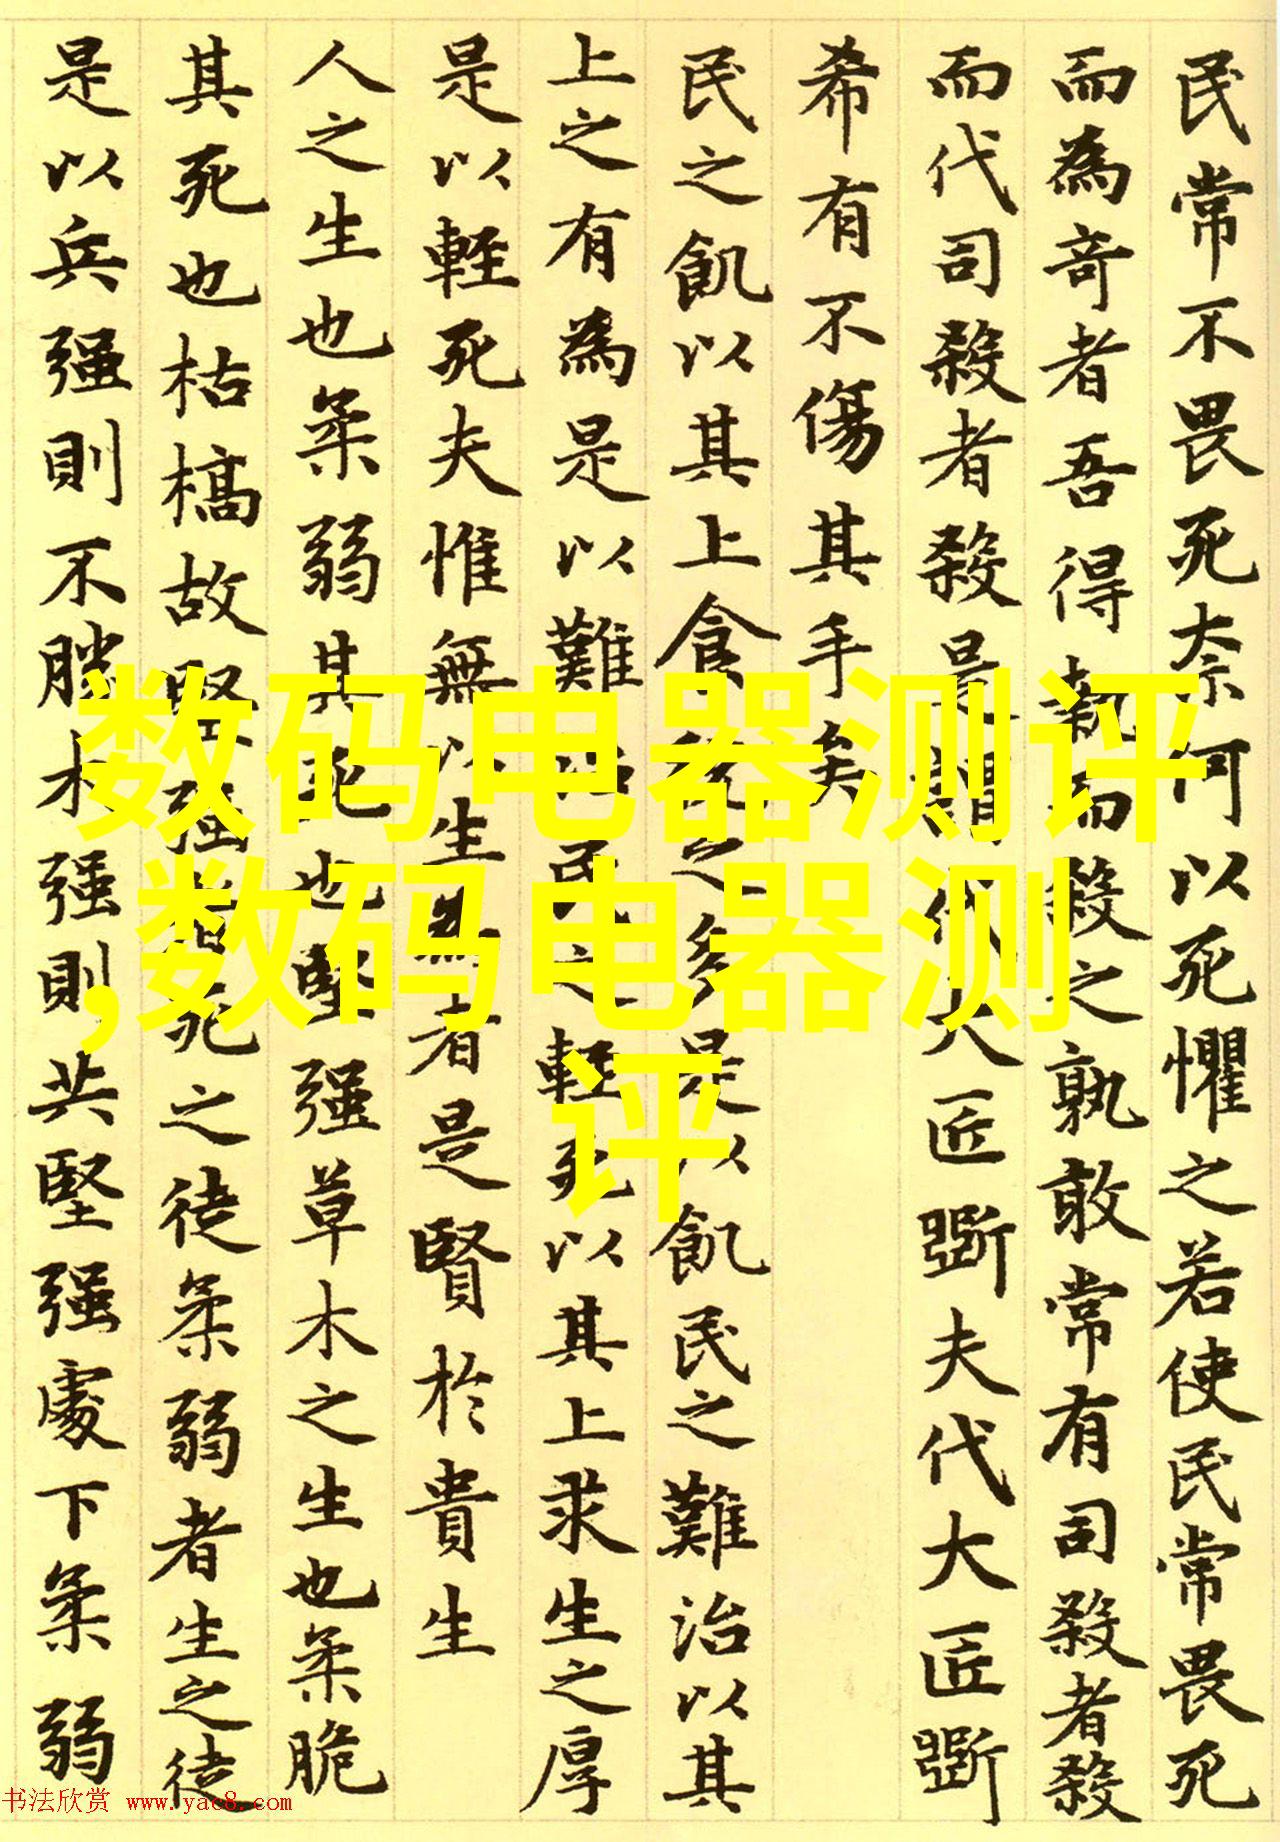 民常不畏死奈何以死懼之若使民常畏死
而為奇者吾得執而殺之孰敢常有司殺者殺
而代司殺者殺是謂代大匠斲夫代大匠斲
希有不傷其手矣
民之飢以其上食稅之多是以飢民之難治以其
上之有為是以難治民之輕死以其上求生之厚
是以輕死夫惟無以生為者是賢於貴生
人之生也柔弱其死也堅强草木之生也柔脆
其死也枯槁故堅强者死之徒柔弱者生之徒
是以兵强則不勝木强則共堅强處下柔弱
数码电器测评
,数码电器测
评
书法欣赏 www.yac8.com